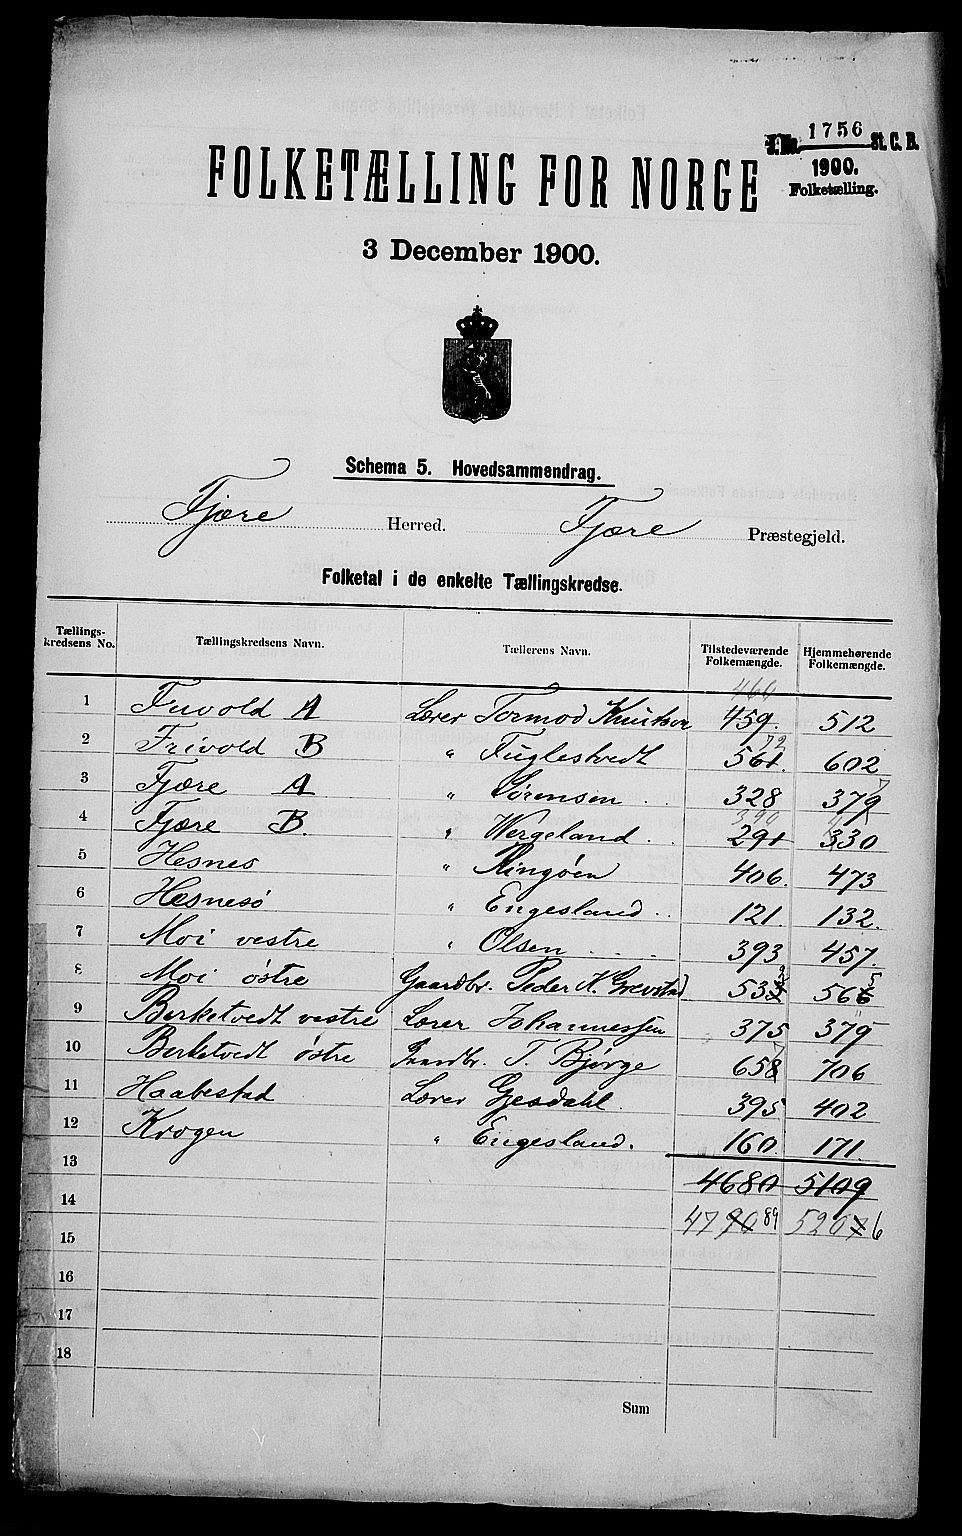 J. No. 1756 St. C. B.
1900.
Folketælling.
FOLKETÆLLING FOR NORGE
3 December 1900.
Schema 5. Hovedsammendrag.
Fjære Herred. Fjære Præstegjeld.
Folketal i de enkelte Tællingskredse.
Tællings-kredsens No. Tællingskredsens Navn. Tællerens Navn. Tilstedeværende Folkemængde. Hjemmehørende Folkemængde.
460
1 Frivold A Lærer Tormod Knutson 459. 512
72
2 Frivold B " Fuglestvedt 561. 602
7
3 Fjære A " Sørensen 328 379
390
4 Fjære B. " Wergeland 291 330
5 Hesnes " Ringøen 406. 473
6 Hesnesø " Engesland 121. 132.
7 Moi vestre " Olsen 393 457.
8 Moi østre Gaardbr. Peder K. Grevstad 533 566 5
9 Berketvedt vestre Lærer Johannessen 375 379
7
10 Berketvedt østre Gaardbr. T. Bjørge 658 706
11 Haabestad Lærer Gjesdahl. 395 402
12 Krogen " Engesland. 160. 171.
13 4680 5109
14 4790 89 5207 6
15
16
17
18
Sum